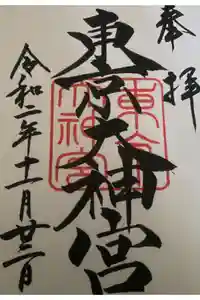 奉拝
東京大神宮
東京大神宮
令和二年十一月廿三日